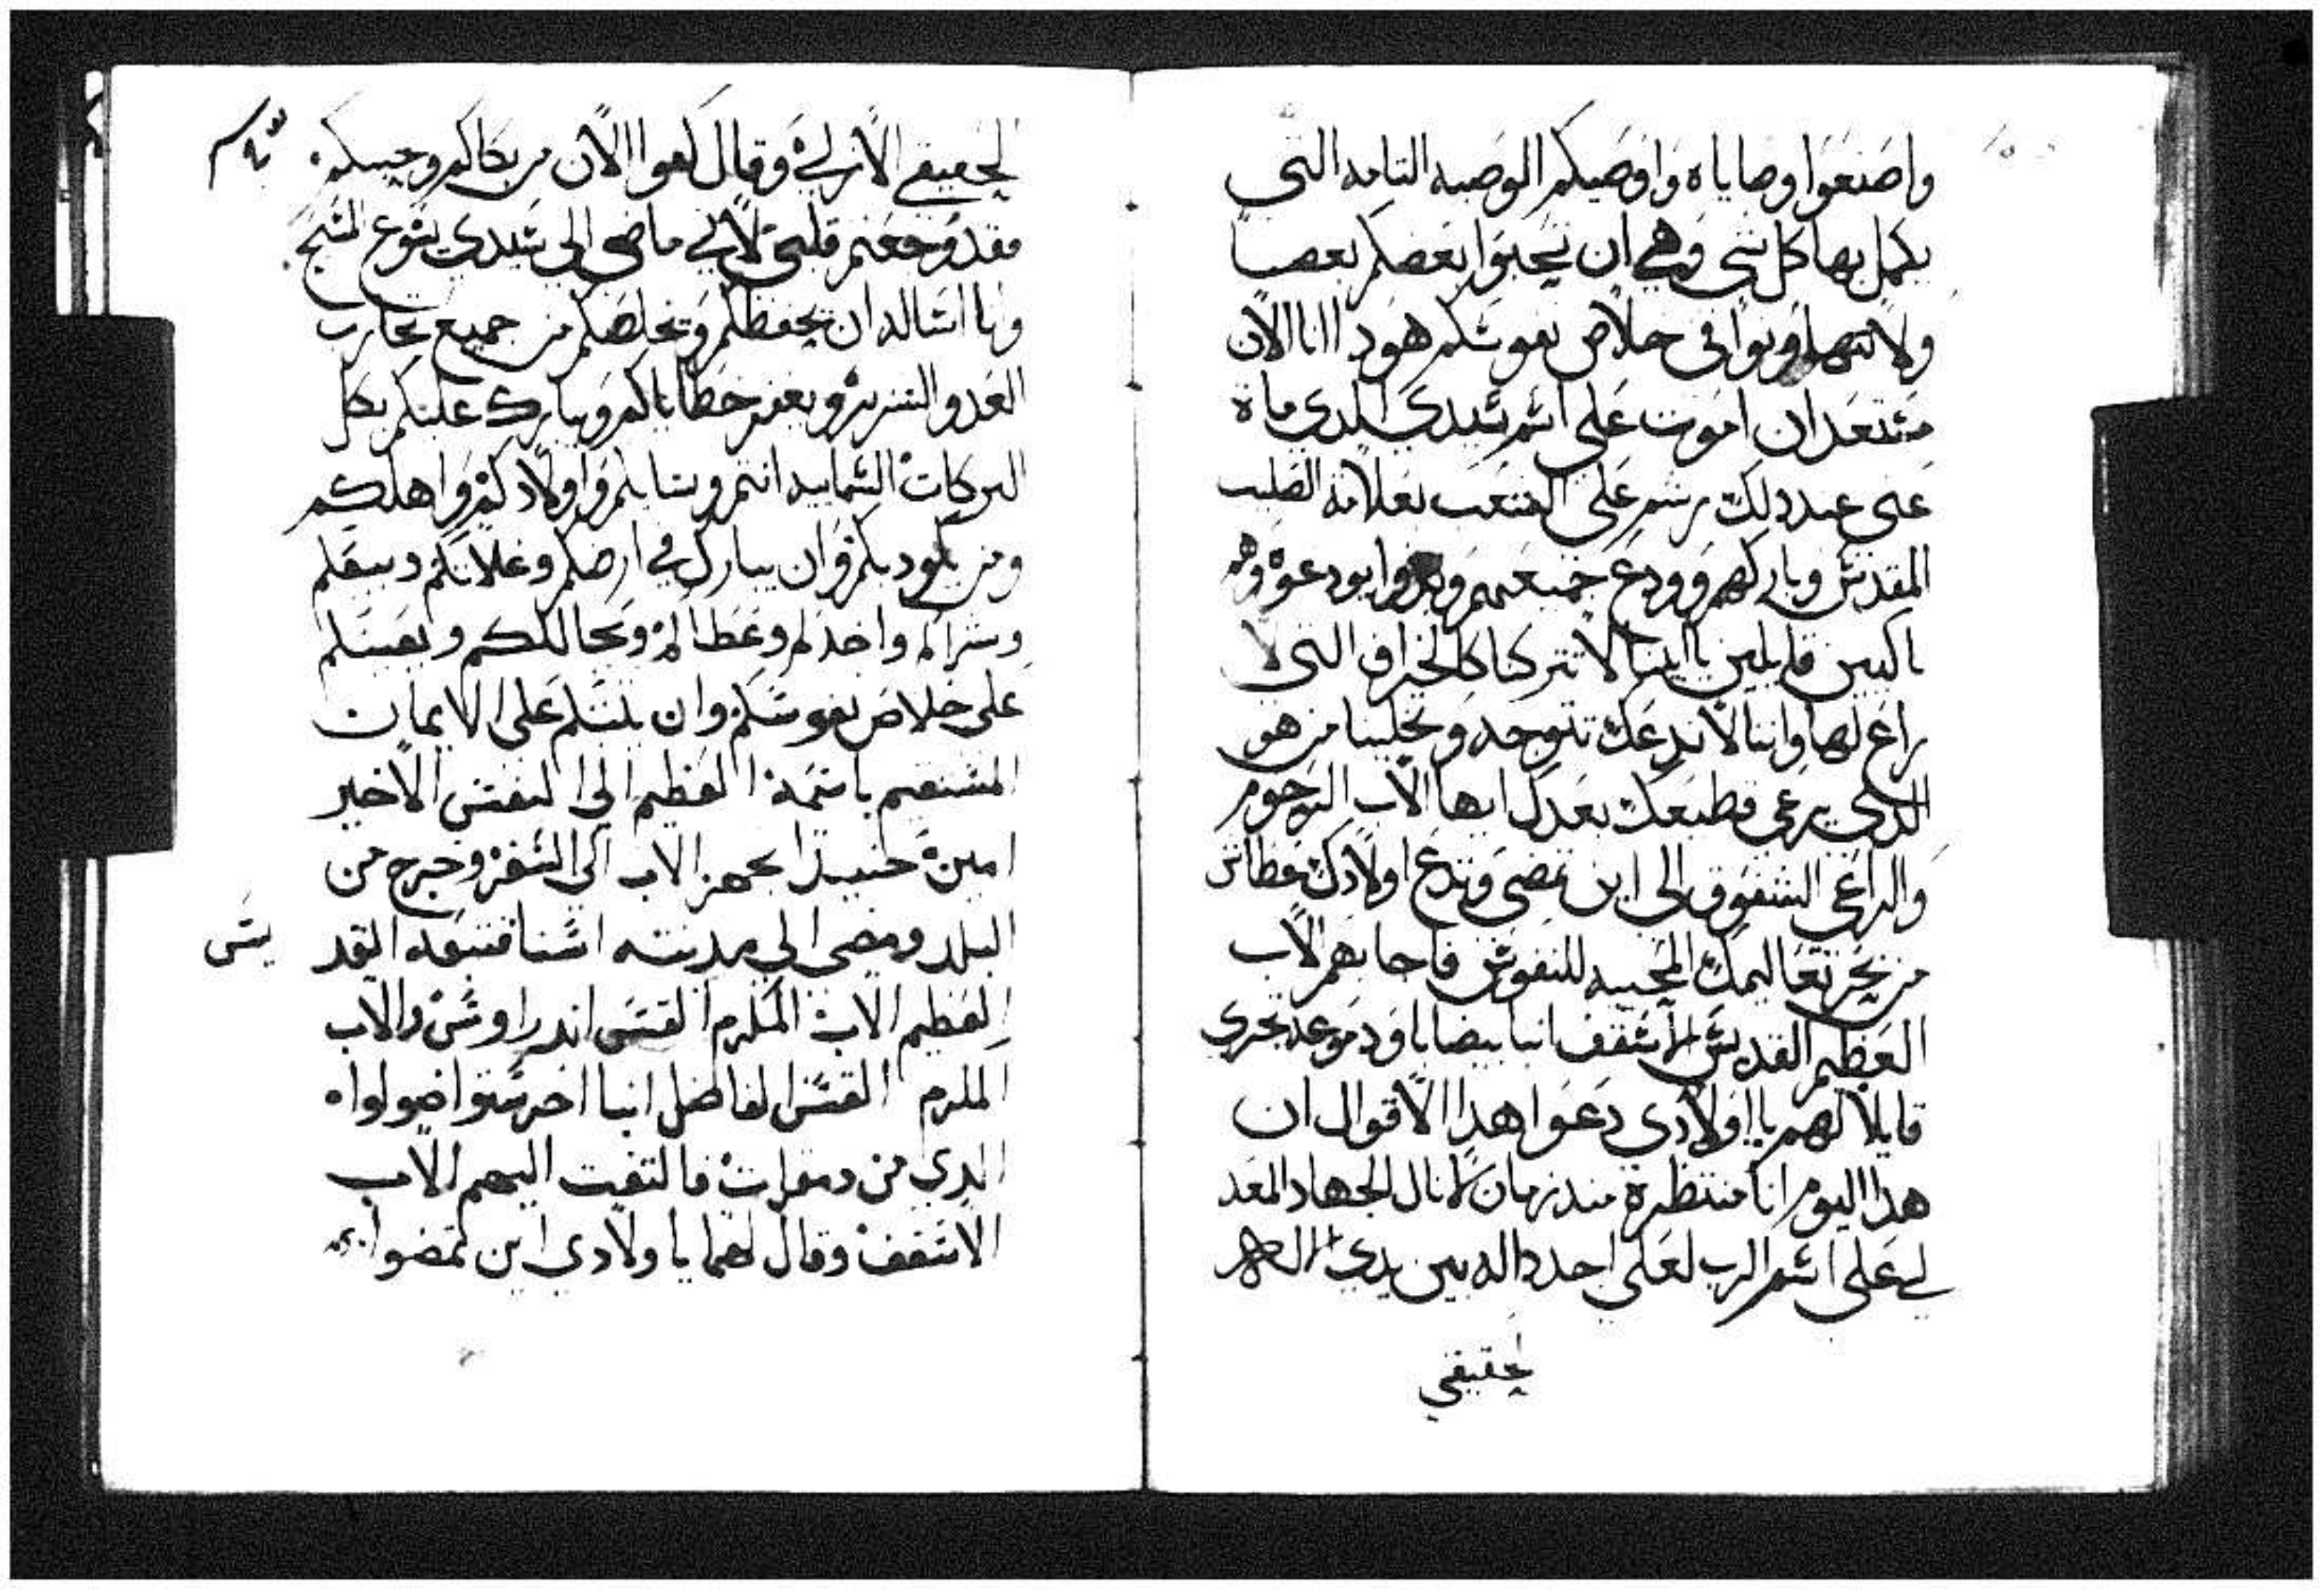 واصنعوا وصاياه واوصيكم الوصيه التامه التى
يكمل بها كل شى وهى ان تحبوا بعضكم بعضا
ولا تتهاونوا فى خلاص نفوسكم هودا انا الان
مستعد ان اموت على اسم سيدى الدى مات
عنى عند دلك رشم على الشعب بعلامة الصليب
المقدس وباركهم وودع جميعهم وبدوا يودعوه وهم
باكيين قايلين يا ابينا لا تتركنا كالخراف التى لا
راع لها واننا لا ندعك تتوجه وتخلينا من هو
الدى يرعى قطيعك بعدك ايها الاب الرحوم
والراعى الشفوق الى اين تمضى وتدع اولادك عطاش
من بحر تعاليمك المحييه للنفوس فاجابهم الاب
العظيم القديس الاسقف انبا بيضابا ودموعه تجرى
قايلا لهم يا اولادى دعوا هدا الاقوال ان
هدا اليوم انا منتظره مند زمان لانال الجهاد المعد
لى على اسم الرب لعلى اجد داله بين يدى الاله
الحقيقى
الحقيقى الازلى وقال كفوا الان من بكاكم وحسبكم
فقد وجعتم قلبى لانى ماضى الى سيدى يسوع المسيح
وانا اساله ان يحفظكم ويخلصكم من جميع تجارب
العدو الشرير ويغفر خطاياكم ويبارك عليكم بكل
البركات السماييه انتم ونسايكم واولادكم واهلكم
ومن يلود بكم وان يبارك فى ارضكم وغلاتكم وبيعكم
وشراكم واخدكم وعطاكم ومحاللكم ويعينكم
على خلاص نفوسكم وان يثبتكم على الايمان
المستقيم باسمه العظيم الى النفس الاخير
امين حنيد تجهز الاب الى السفر وخرج من
البلد ومضى الى مدينته اسنا فتبعه القد
يس
العظيم الاب المكرم القس اندراوس والاب
المكرم القس الفاضل انبا اخرستواضولوا
الدى من دمقرات فالتفت اليهم الاب
الاسقف وقال لهما يا ولادى اين تمضوا